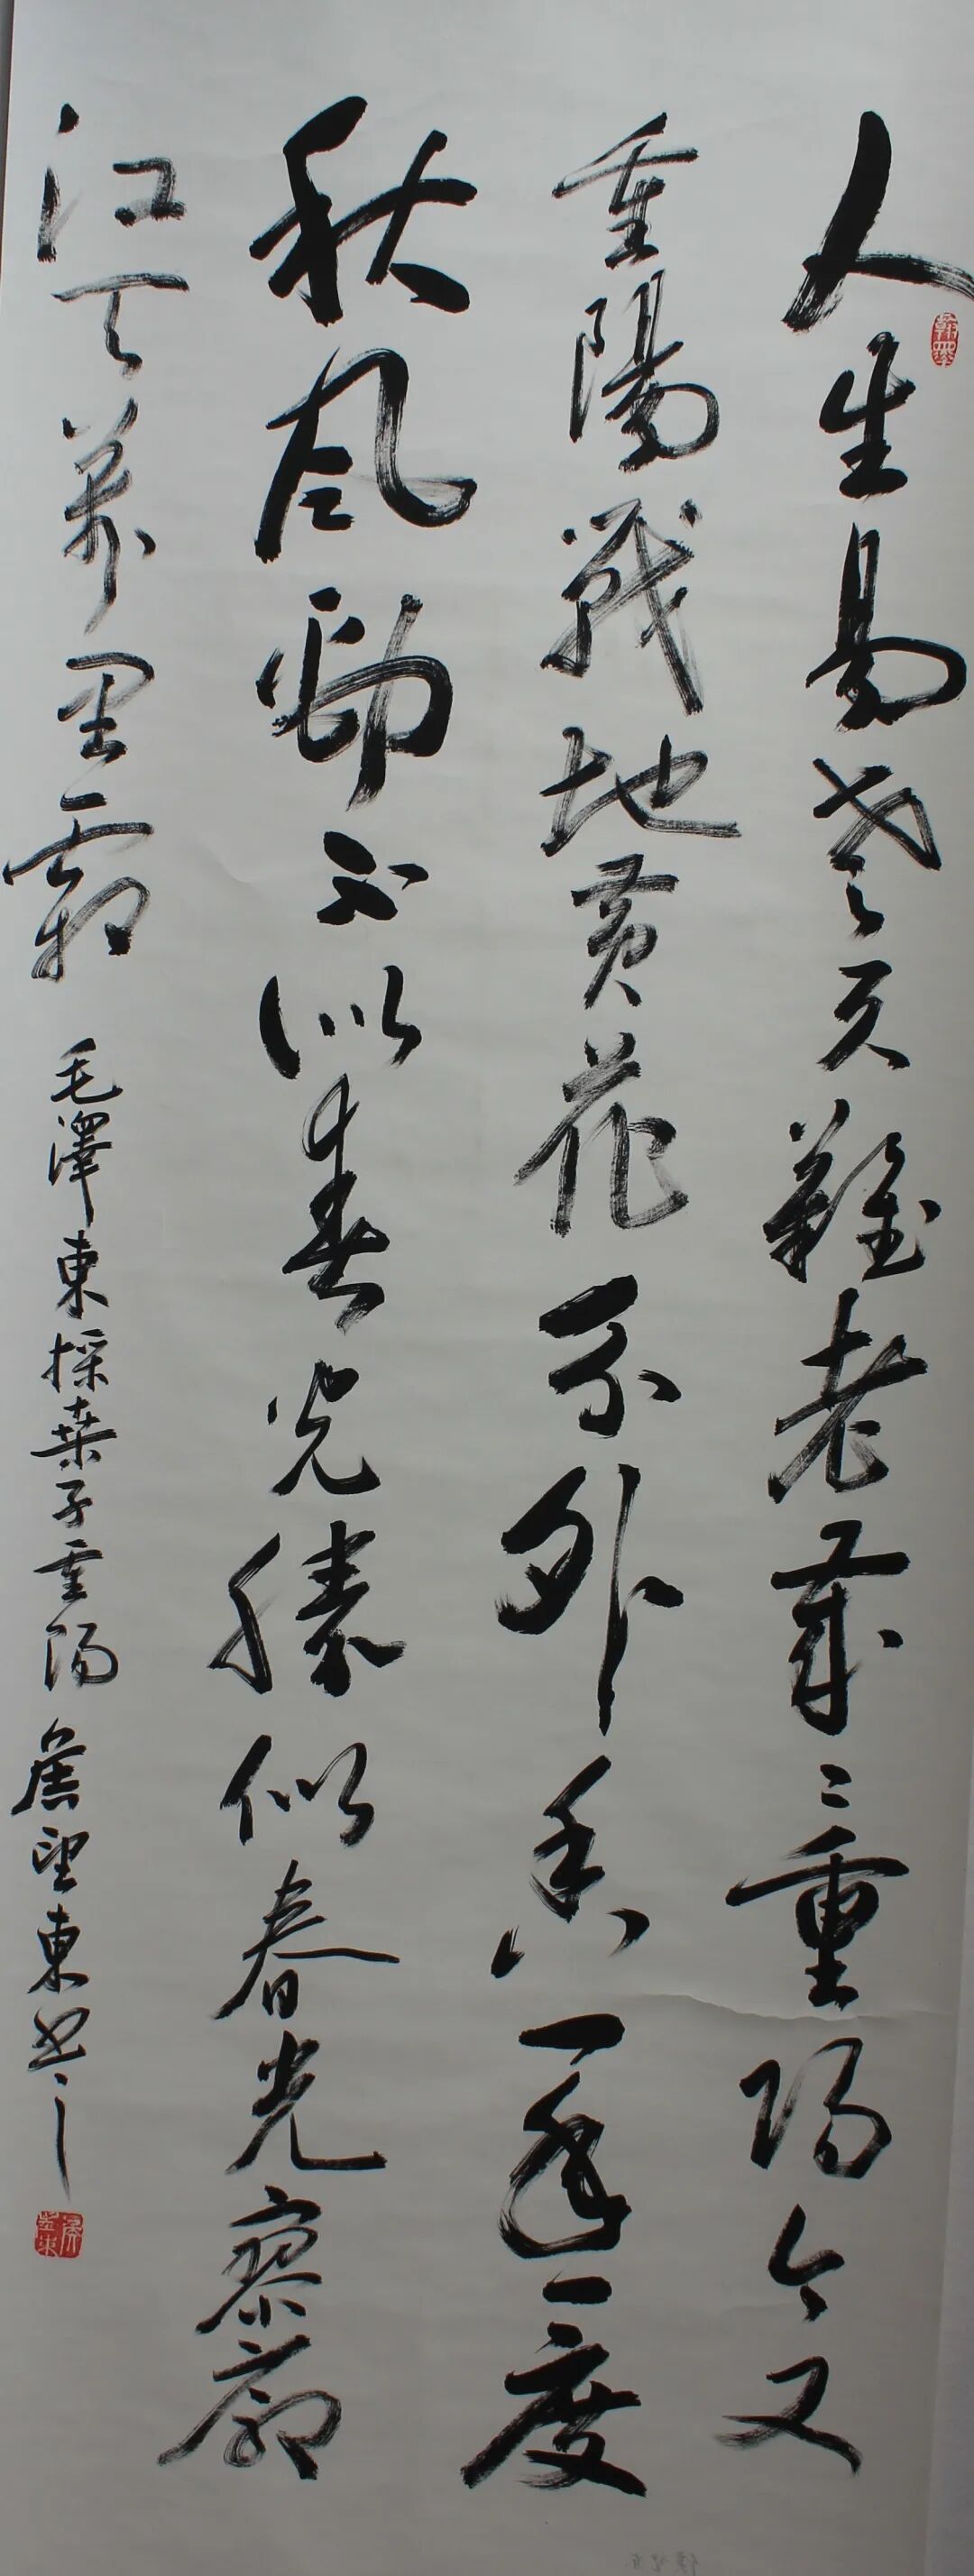 人生易老天難老歲々重陽今又
重陽戰地黃花分外香一年一度
秋風勁不似春光勝似春光寥廓
江天萬里霜 毛澤東採桑子重陽 望東書